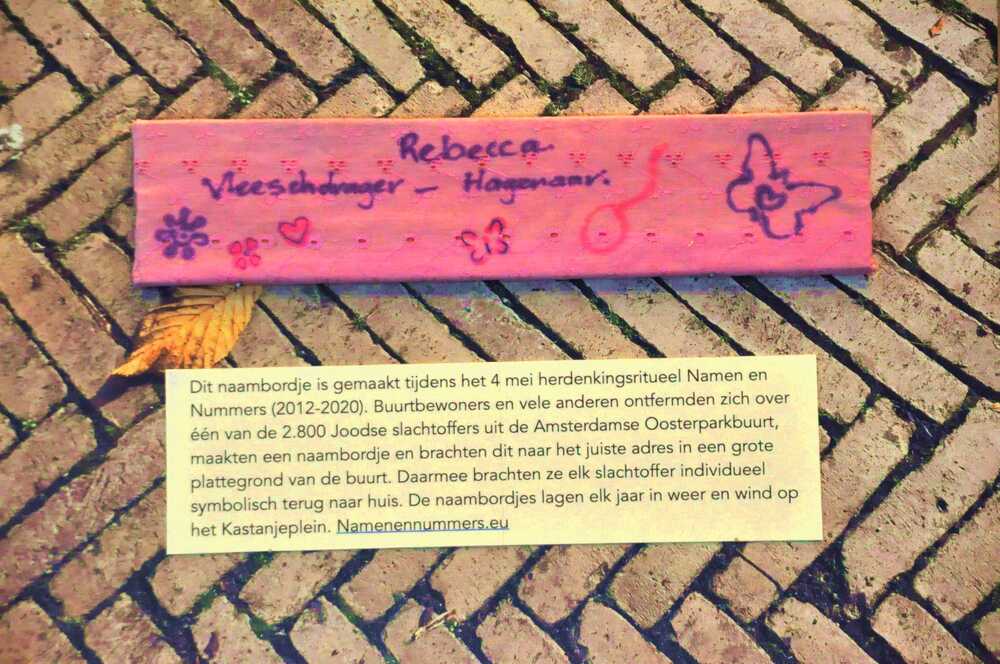 Rebecca
Vleeschdrager - Hagenaar.
Dit naambordje is gemaakt tijdens het 4 mei herdenkingsritueel Namen en
Nummers (2012-2020). Buurtbewoners en vele anderen ontfermden zich over
één van de 2.800 Joodse slachtoffers uit de Amsterdamse Oosterparkbuurt,
maakten een naambordje en brachten dit naar het juiste adres in een grote
plattegrond van de buurt. Daarmee brachten ze elk slachtoffer individueel
symbolisch terug naar huis. De naambordjes lagen elk jaar in weer en wind op
het Kastanjeplein. Namenennummers.eu